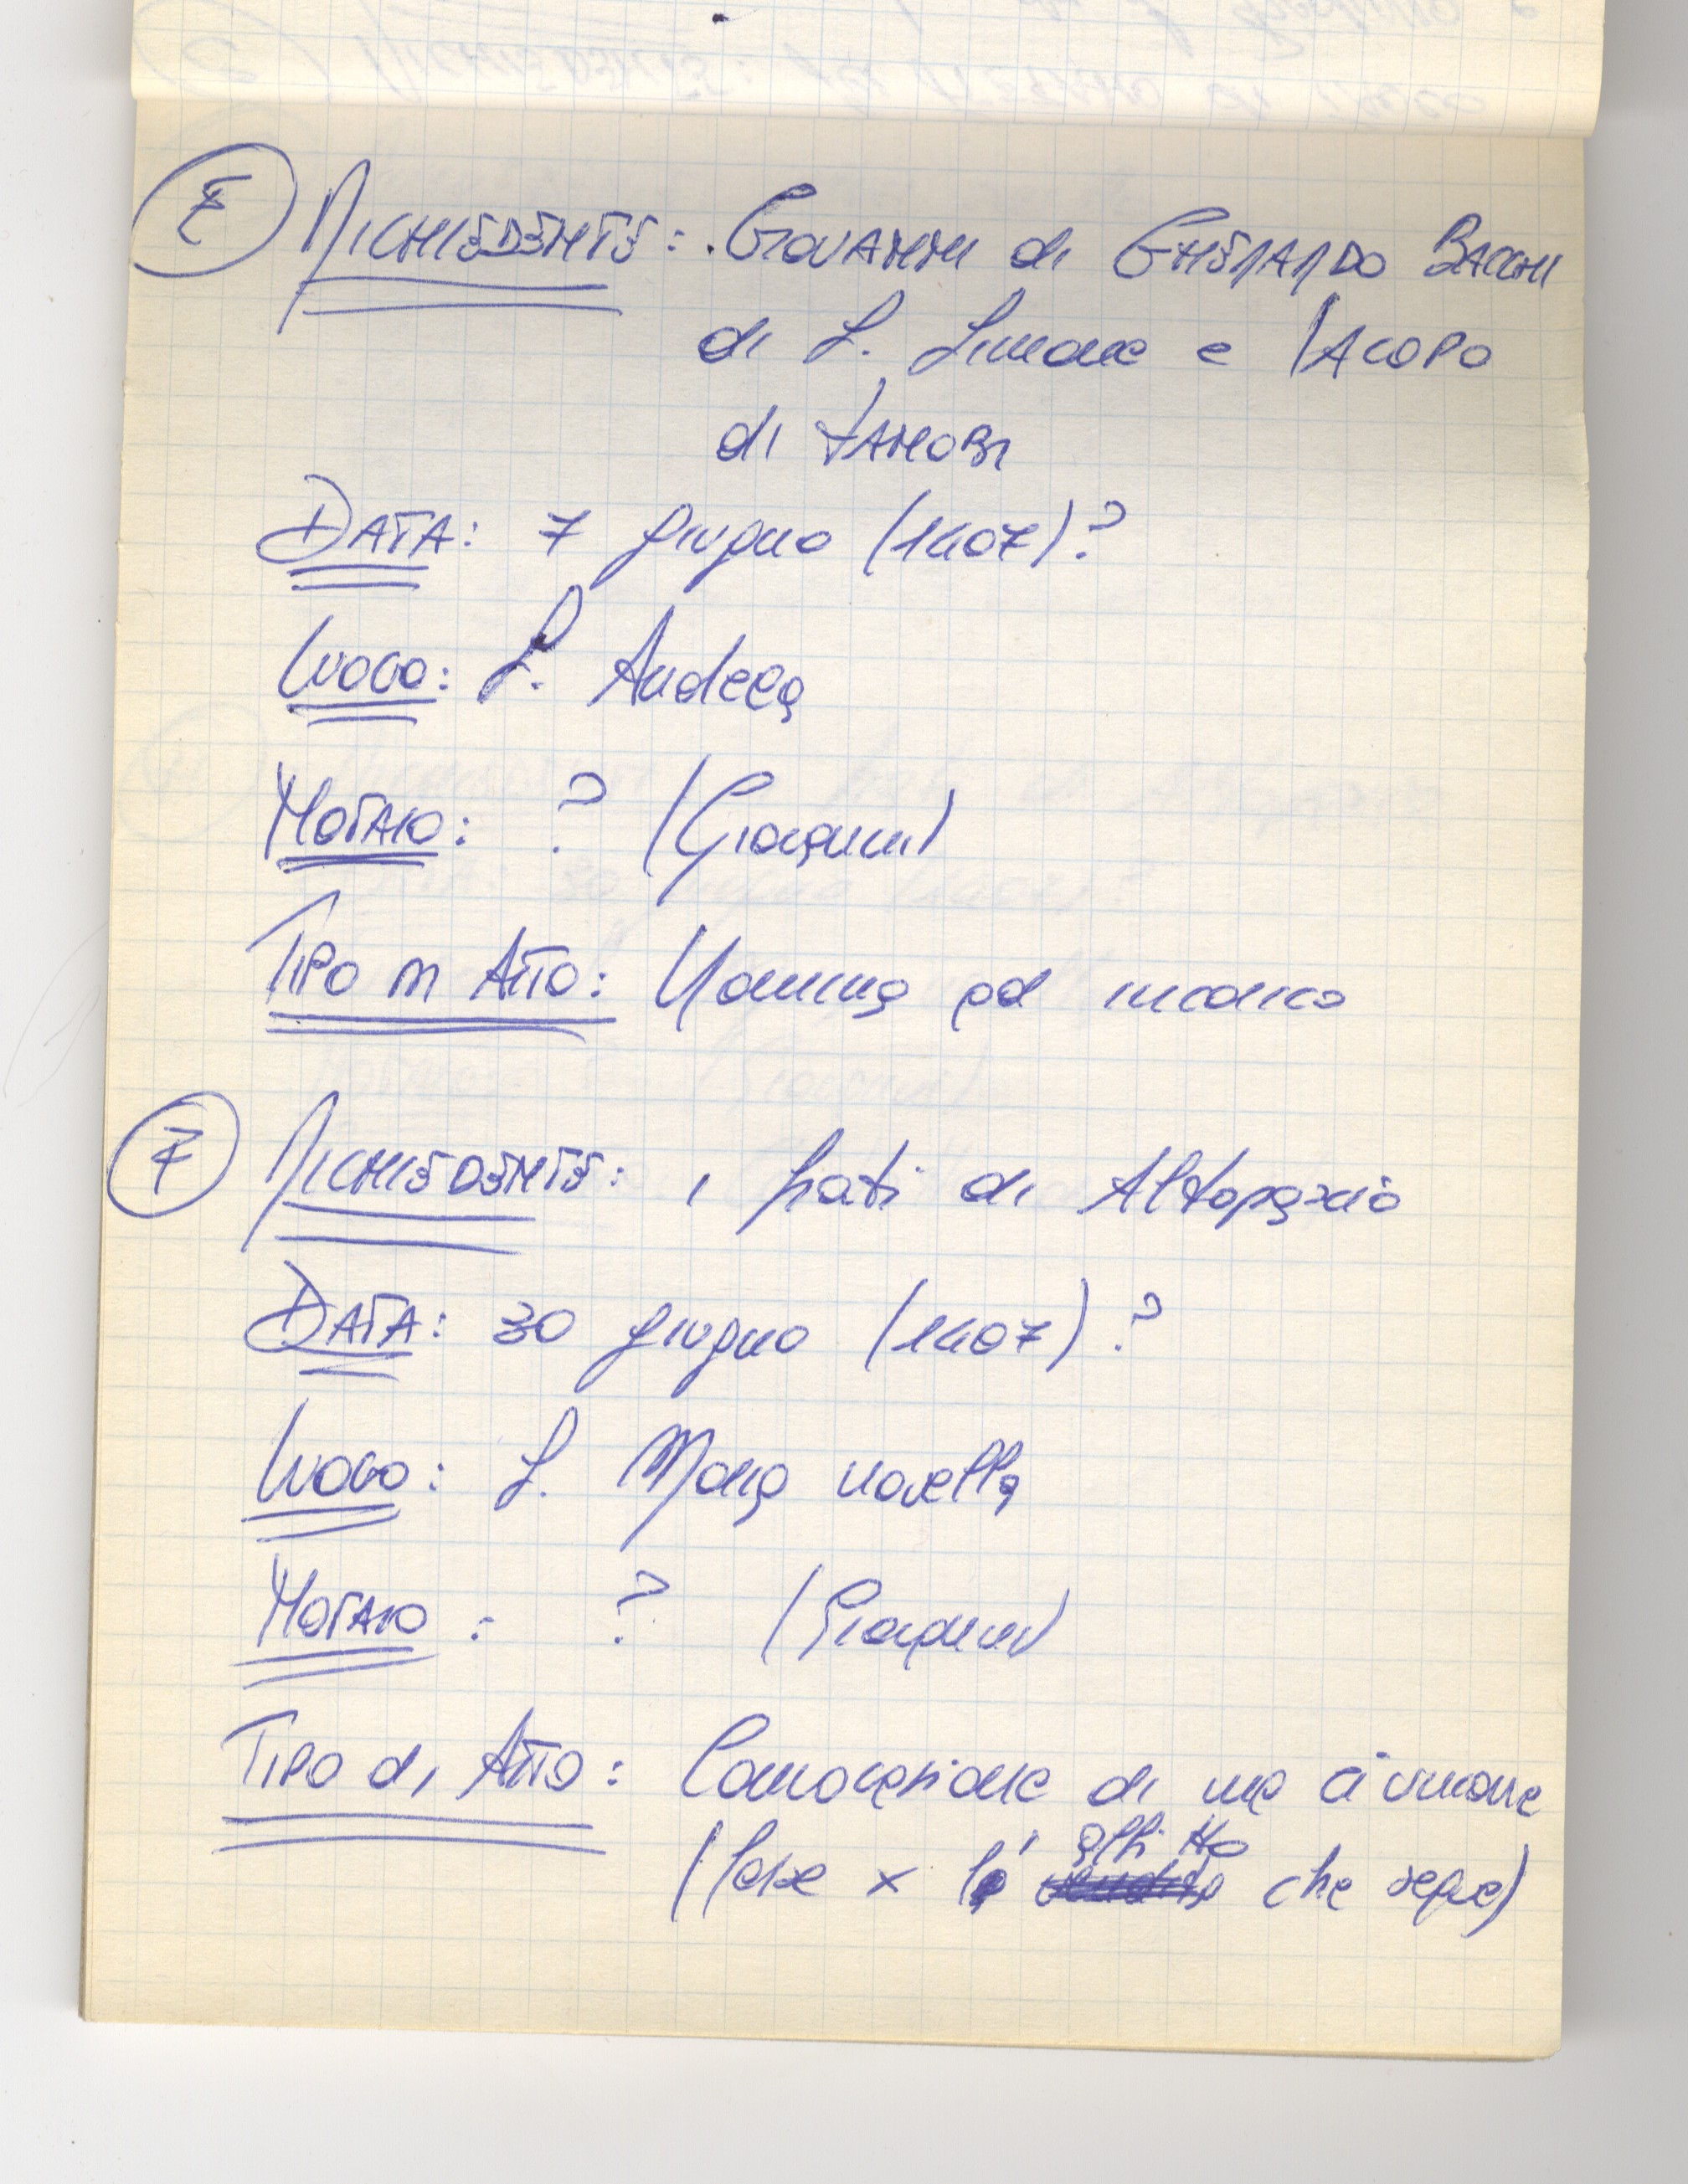 E RICHIEDENTE: Giovanni di Gherardo Bacchi
di S. Simone e Iacopo
di Zanobi
Data: 7 giugno (1407)?
Luogo: S. Andrea
Notaio: ? (Giovanni)
Tipo di Atto: Nomina ad
7 RICHIEDENTE: i frati di Altopascio
Data: 30 giugno (1407)?
Luogo: S. Maria novella
Notaio: ? (Giovanni)
Tipo di Atto: Convocazione di una riunione
affitto
(forse x l' vendita che segue)